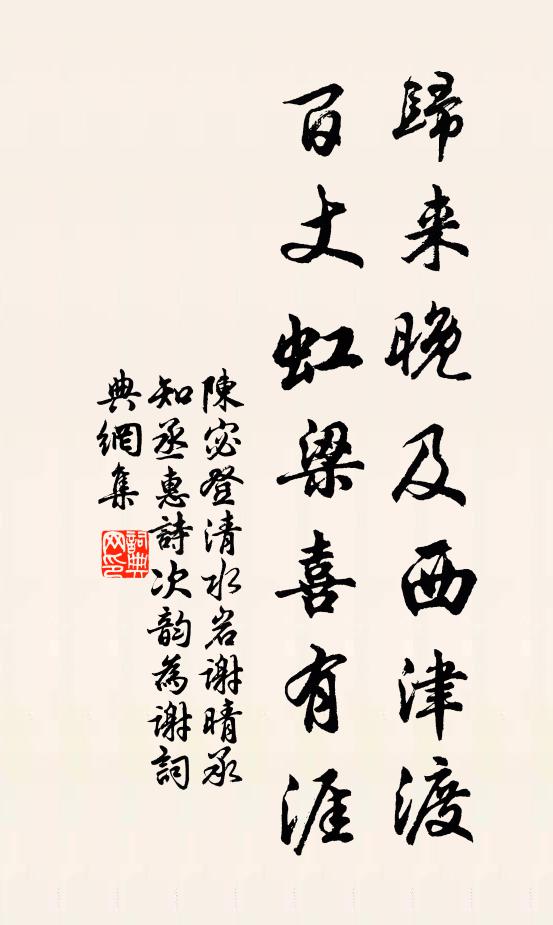 歸来晚及西津渡
百丈虹梁喜有涯
陳宓登清水岩谢晴承
知丞惠詩次韵為谢詞
典網集
詞典网印